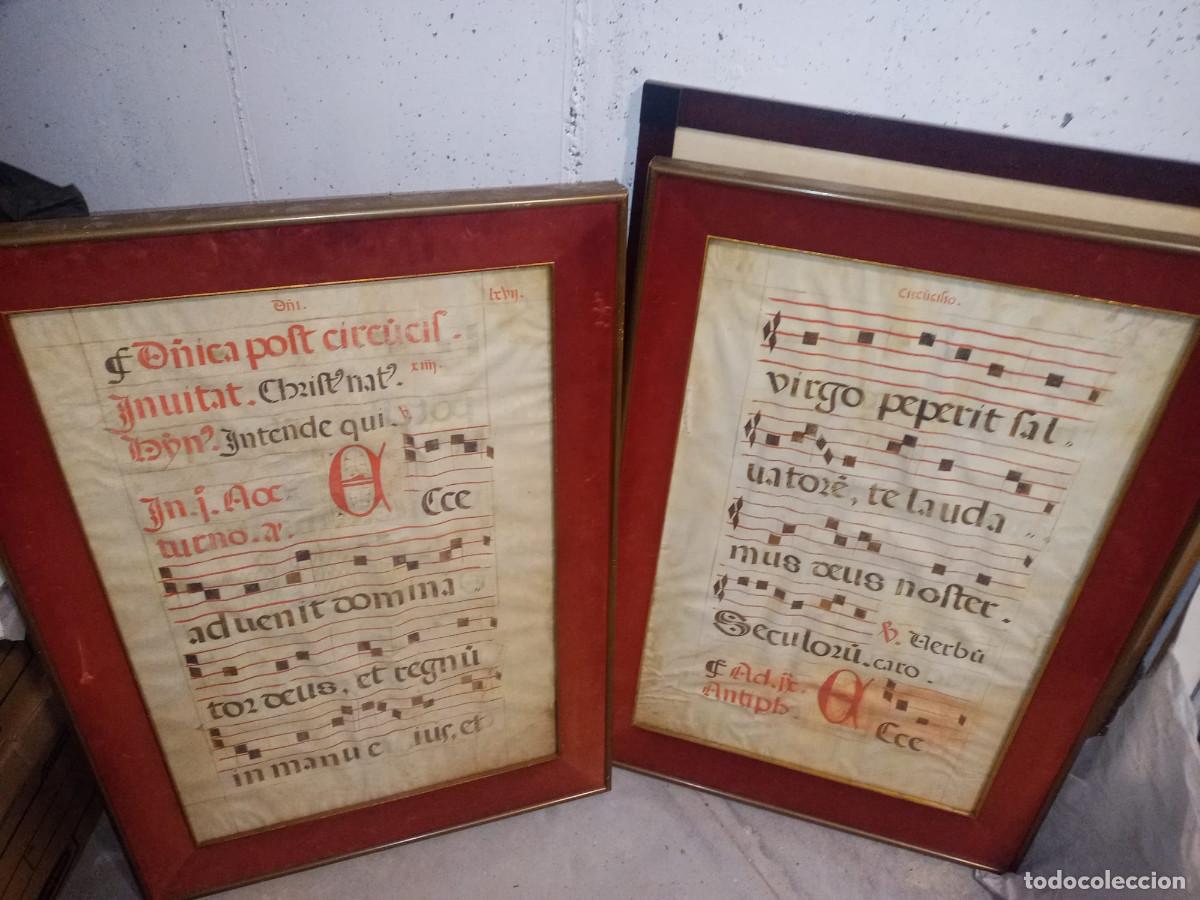 Dñi. lxvij.
¶ Dñica post circũcis.
Inuitat. Christꝰ natꝰ. xiiij.
Hỹnꝰ. Intende qui. ℟
In .j. Noc
turno. añ. E
cce
aduenit domina
tor deus, et regnũ
in manu e ius, et
Circũcisio.
virgo peperit sal„
uatorẽ, te lauda„
mus deus noster.
Seculorũ. ℣. Verbũ
caro.
¶ Ad .ijᵉ.
Antiph. E
cce
todocoleccion